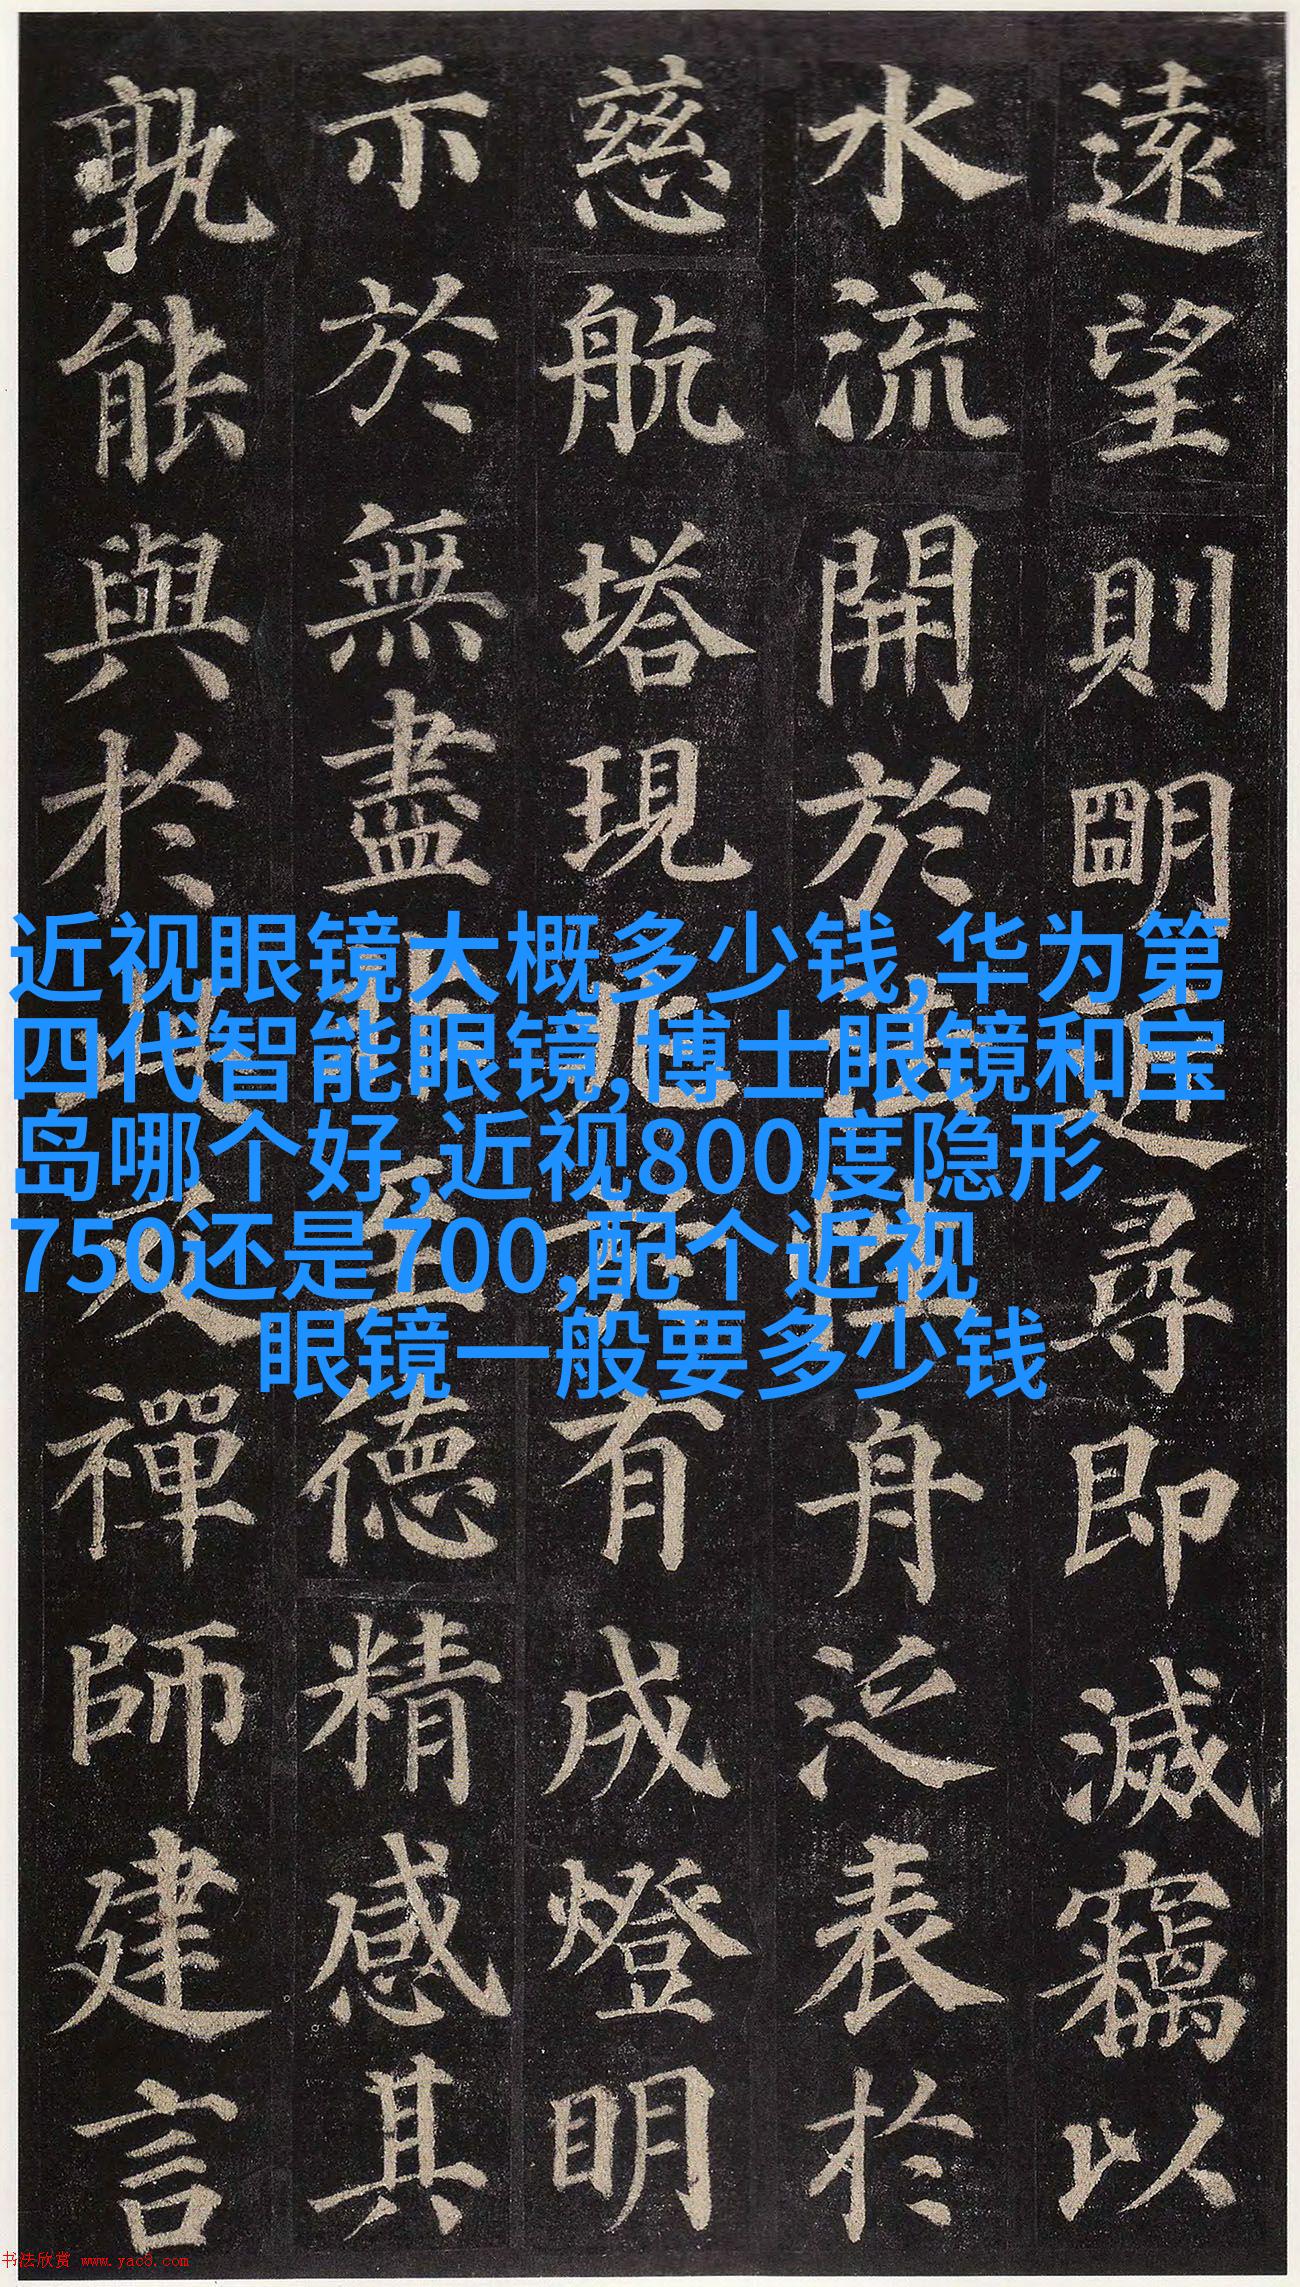 遠望則明近尋即滅竊以
水流開於法性舟泛表於
慈航塔現兆於有成燈明
示於無盡非至德精感其
孰能與於此及禪師建言
近视眼镜大概多少钱,华为第
四代智能眼镜,博士眼镜和宝
岛哪个好,近视800度隐形
750还是700,配个近视
眼镜一般要多少钱
书法欣赏 www.yac8.com